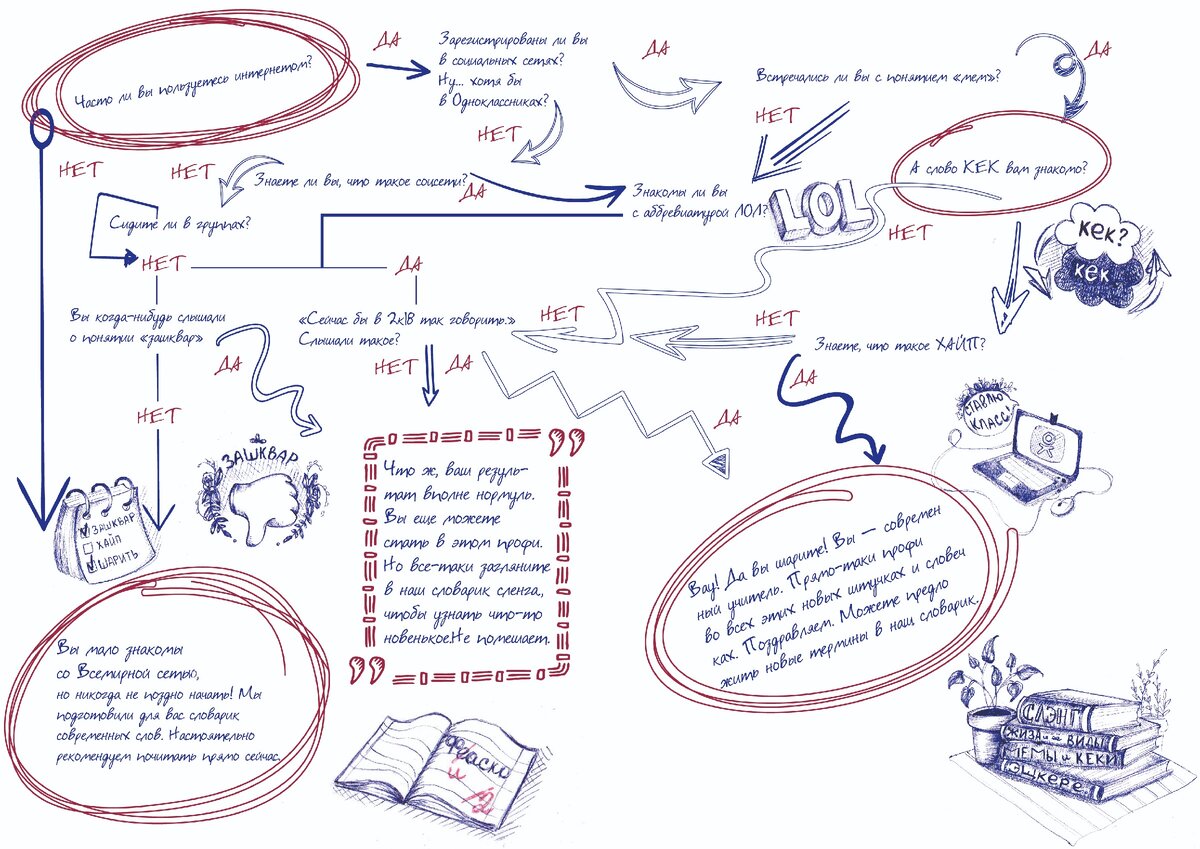 Часто ли вы пользуетесь интернетом?
ДА
Зарегистрированы ли вы
в социальных сетях?
Ну... хотя бы
в Одноклассниках?
ДА
Встречались ли вы с понятием «мем»?
ДА
НЕТ
НЕТ
А слово КЕК вам знакомо?
НЕТ
НЕТ
Знаете ли вы, что такое соцсети?
ДА
Знакомы ли вы
с аббревиатурой ЛОЛ?
LOL
НЕТ
кек?
кек.
Сидите ли в группах?
НЕТ
ДА
Вы когда-нибудь слышали
о понятии «зашквар»
ДА
НЕТ
«Сейчас бы в 2к18 так говорить.»
Слышали такое?
НЕТ
НЕТ
ДА
НЕТ
Знаете, что такое ХАЙП?
ДА
ДА
СТАВЛЮ
КЛАСС!
ЗАШКВАР
ЗАШКВАР
ХАЙП
ШАРИТЬ
Что ж, ваш резуль-
тат вполне нормуль.
Вы еще можете
стать в этом профи.
Но все-таки загляните
в наш словарик сленга,
чтобы узнать что-то
новенькое.Не помешает.
Вау! Да вы шарите! Вы — современ
ный учитель. Прямо-таки профи
во всех этих новых штучках и словеч
ках. Поздравляем. Можете предло
жить новые термины в наш словарик.
Вы мало знакомы
со Всемирной сетью,
но никогда не поздно начать! Мы
подготовили для вас словарик
современных слов. Настоятельно
рекомендуем почитать прямо сейчас.
Фиаско
и
СЛЭНГ
ЖИЗА и ее ВИДЫ
МЕМЫ и КЕКИ
ЭШКЕРЕ.